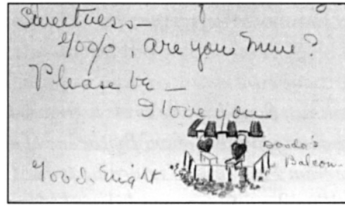 Sweetness—
Goo'o, are you mine?
Please be —
I love you
Goodo's
Balcon
Good. Night